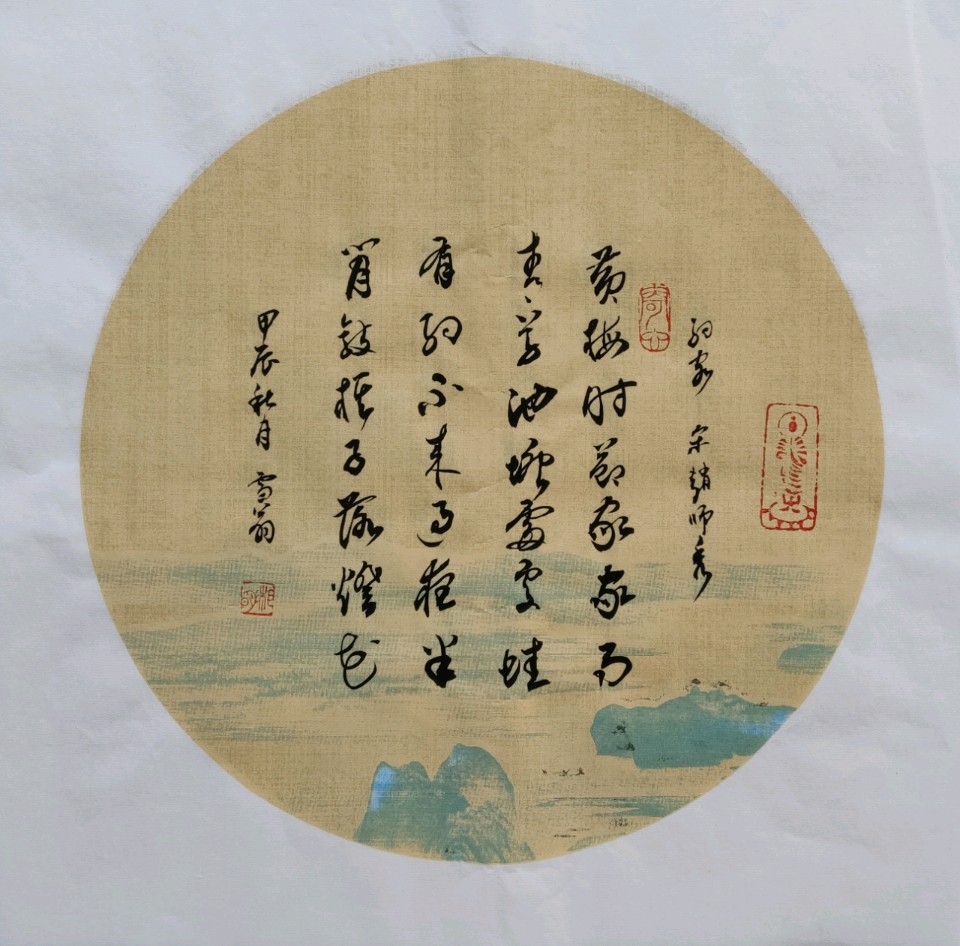 約客 宋 趙師秀
黄梅时節家家雨
青草池塘處處蛙
有約不来過夜半
閒敲棋子落燈花
甲辰秋月 雪翁